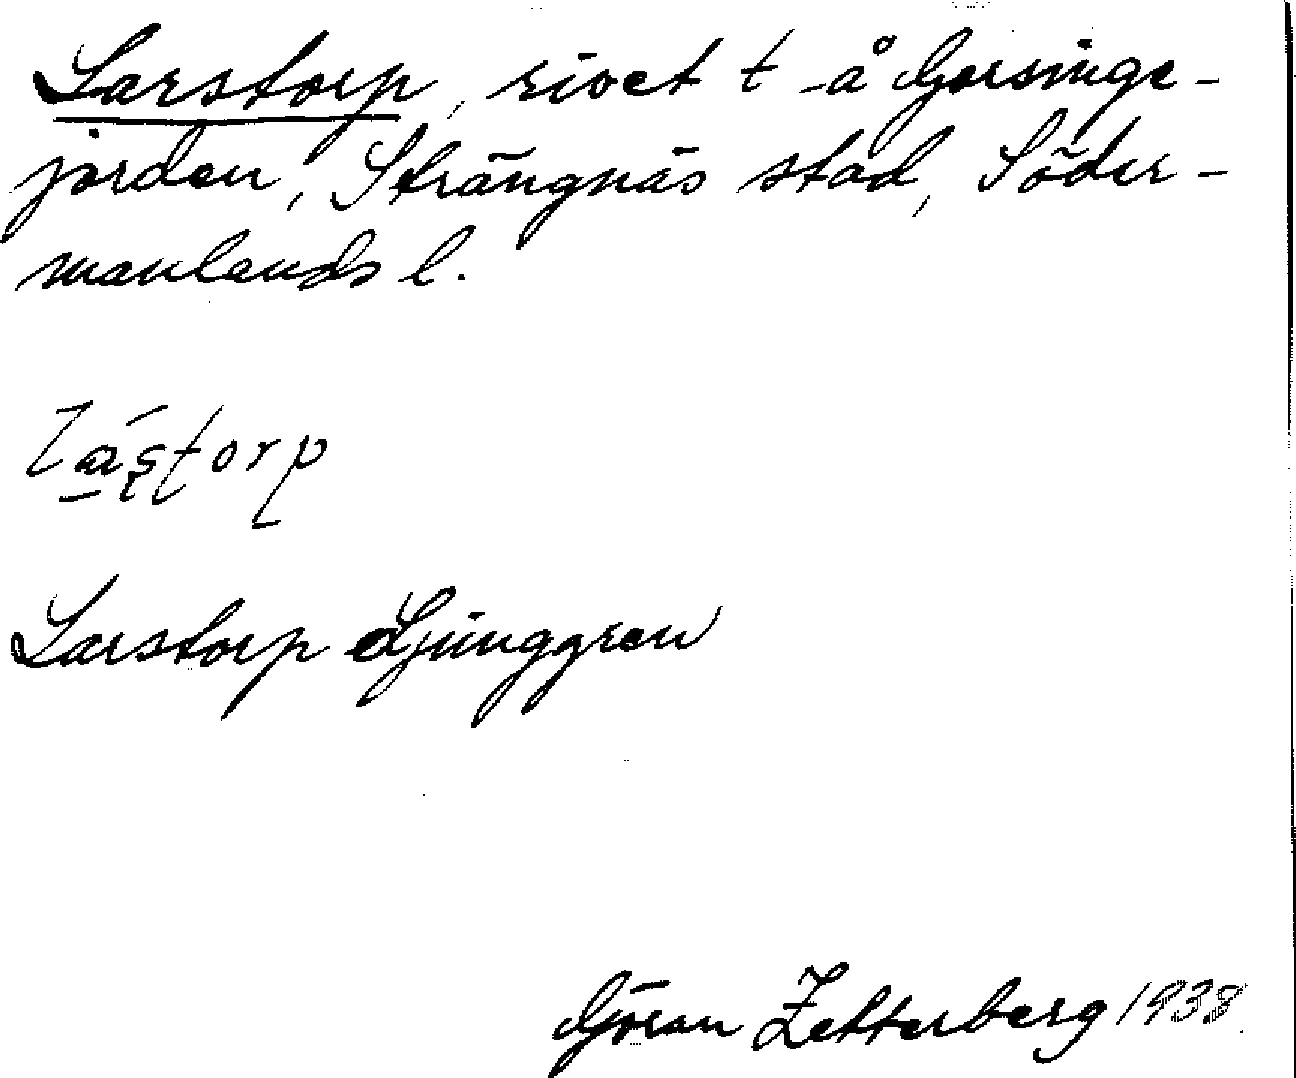 Larstorp, rivet t å Gorsinge-
jorden, Strängnäs stad, Söder-
manlands l.
lástorp
Larstorp Ljunggren
Göran Zetterberg 1938